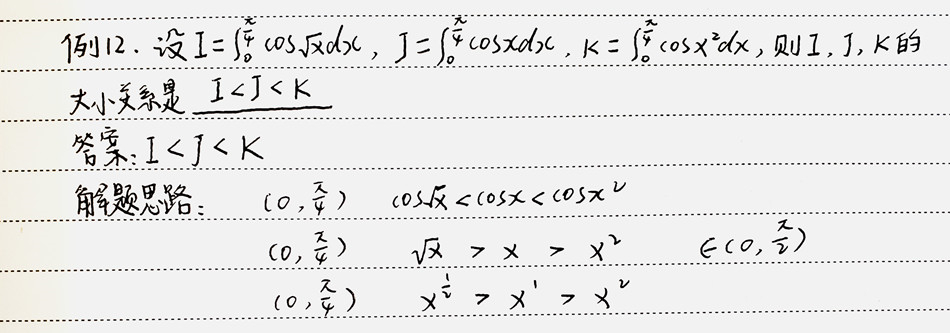 例12. 设 I=∫₀^(π/4) cos√x dx, J=∫₀^(π/4) cosxdx, K=∫₀^(π/4) cosx²dx, 则I, J, K的
大小关系是 I<J<K
答案: I<J<K
解题思路: (0, π/4) cos√x<cosx<cosx²
(0, π/4) √x > x > x² ∈(0, π/2)
(0, π/4) x^(1/2) > x¹ > x²